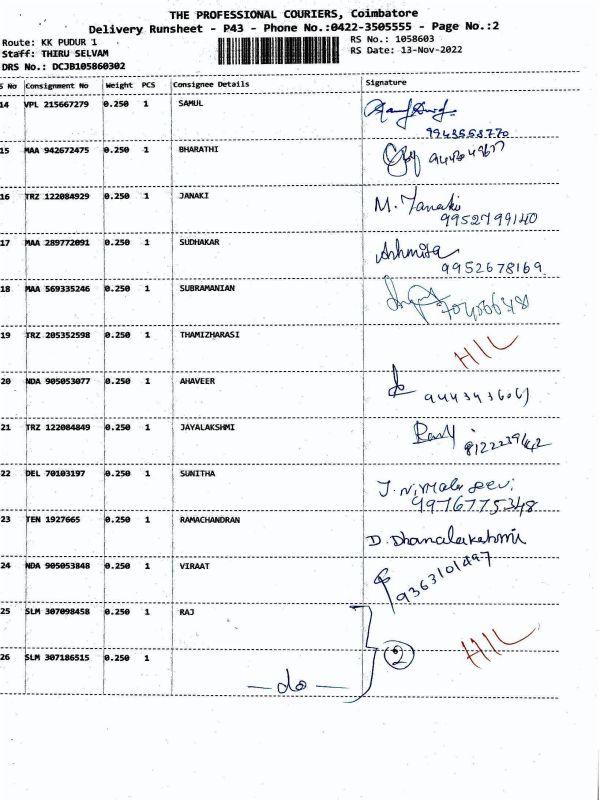 THE PROFESSIONAL COURIERS, Coimbatore
Delivery Runsheet - P43 - Phone No.:0422-3505555 - Page No.:2
Route: KK PUDUR 1 RS No.: 1058603
Staff: THIRU SELVAM RS Date: 13-Nov-2022
DRS No.: DCJB105860302
S No Consignment No Weight PCS Consignee Details Signature
14 VPL 215667279 0.250 1 SAMUL
15 MAA 942672475 0.250 1 BHARATHI
16 TRZ 122084929 0.250 1 JANAKI M. Janaki
9952799140
17 MAA 289772091 0.250 1 SUDHAKAR Ashmita
9952678169
18 MAA 569335246 0.250 1 SUBRAMANIAN
19 TRZ 205352598 0.250 1 THAMIZHARASI H/L
20 NDA 905053077 0.250 1 AHAVEER
21 TRZ 122084849 0.250 1 JAYALAKSHMI
22 DEL 70103197 0.250 1 SUNITHA J. Nirmala Devi
9976775348
23 TEN 1927665 0.250 1 RAMACHANDRAN D. Dhanalakshmi
24 NDA 905053848 0.250 1 VIRAAT 9363101497
25 SLM 307098458 0.250 1 RAJ
2 H/L
26 SLM 307186515 0.250 1
- do -